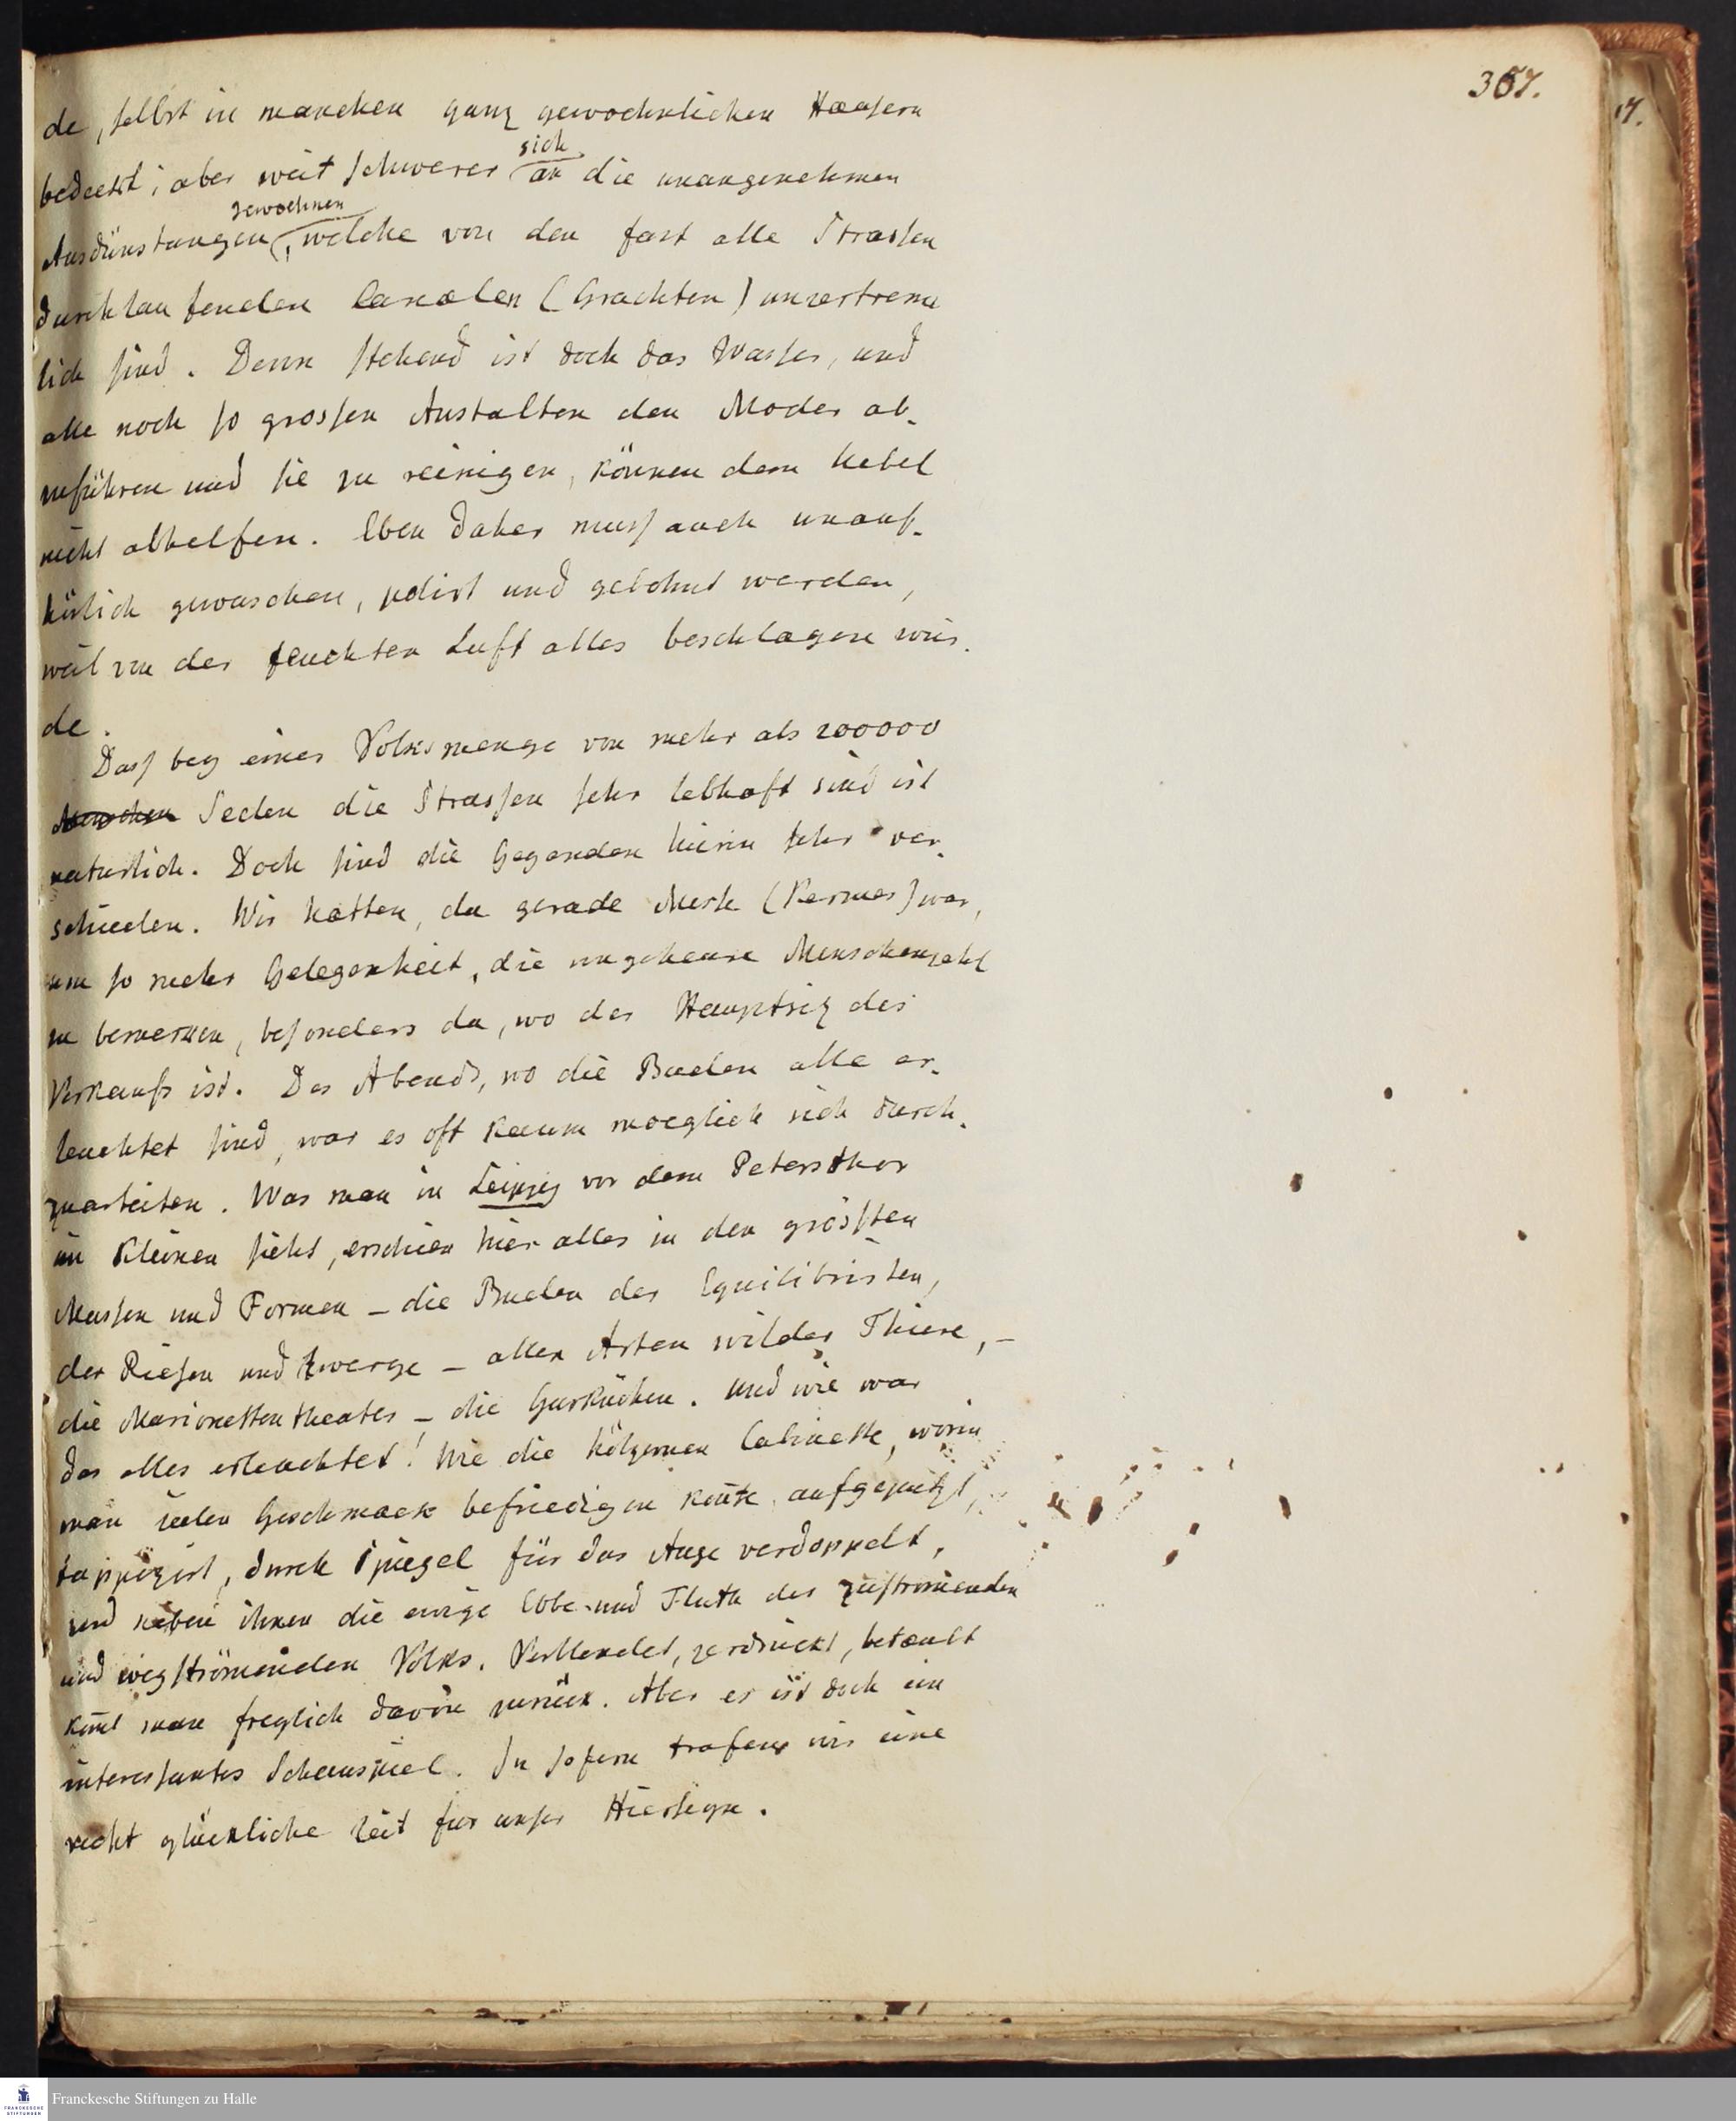 367.
17.
de, selbst in manchen ganz gewoehnlichen Haeusern
bedeckt; aber weit schwerer sich an die unangenehmen
Ausdünstungen gewoehnen, welche von den fast alle Strassen
durchlaufenden Canælen (Grachten) unzertrenn
lich sind. Denn stehend ist doch das Wasser, und
alle noch so grossen Anstalten den Moder ab-
zuführen und sie zu reinigen, können dem Uebel
nicht abhelfen. Eben daher muss auch unauf-
hörlich gewaschen, polirt und gebohnt werden,
weil von der feuchten Luft alles beschlagen wür-
de.
Dass bey einer Volksmenge von mehr als 200000
Menschen Seelen die Strassen sehr lebhaft sind ist
natürlich. Doch sind die Gegenden hierin sehr ver-
schieden. Wir hatten, da gerade Mess (Kermes) war,
um so mehr Gelegenheit, die ungeheure Menschenzahl
zu bemerken, besonders da, wo der Hauptsiz des
Verkaufs ist. Des Abends, wo die Buden alle er-
leuchtet sind, war es oft kaum moeglich sich durch-
zuarbeiten. Was man in Leipzig vor dem Petersthor
im Kleinen sieht, erschien hier alles in den grössten
Massen und Formen – die Buden der Equilibristen,
der Riesen und Zwerge – aller Arten wilder Thiere, –
die Marionettentheater – die Garküchen. Und wie war
das alles erleuchtet! Wie die hölzernen Cabinette, worin
man jeden Geschmack befriedigen konte, aufgepuzt,
tappezirt, durch Spiegel für das Auge verdoppelt,
und neben ihnen die ewige Ebbe und Fluth des zuströmenden
und wegströmenden Volks. Verblendet, zerdrückt, betæubt
kömt man freylich davon zurück. Aber es ist doch ein
interessantes Schauspiel. In sofern trafen wir eine
recht glückliche Zeit für unser Hierseyn.
Franckesche Stiftungen zu Halle
FRANCKESCHE
STIFTUNGEN